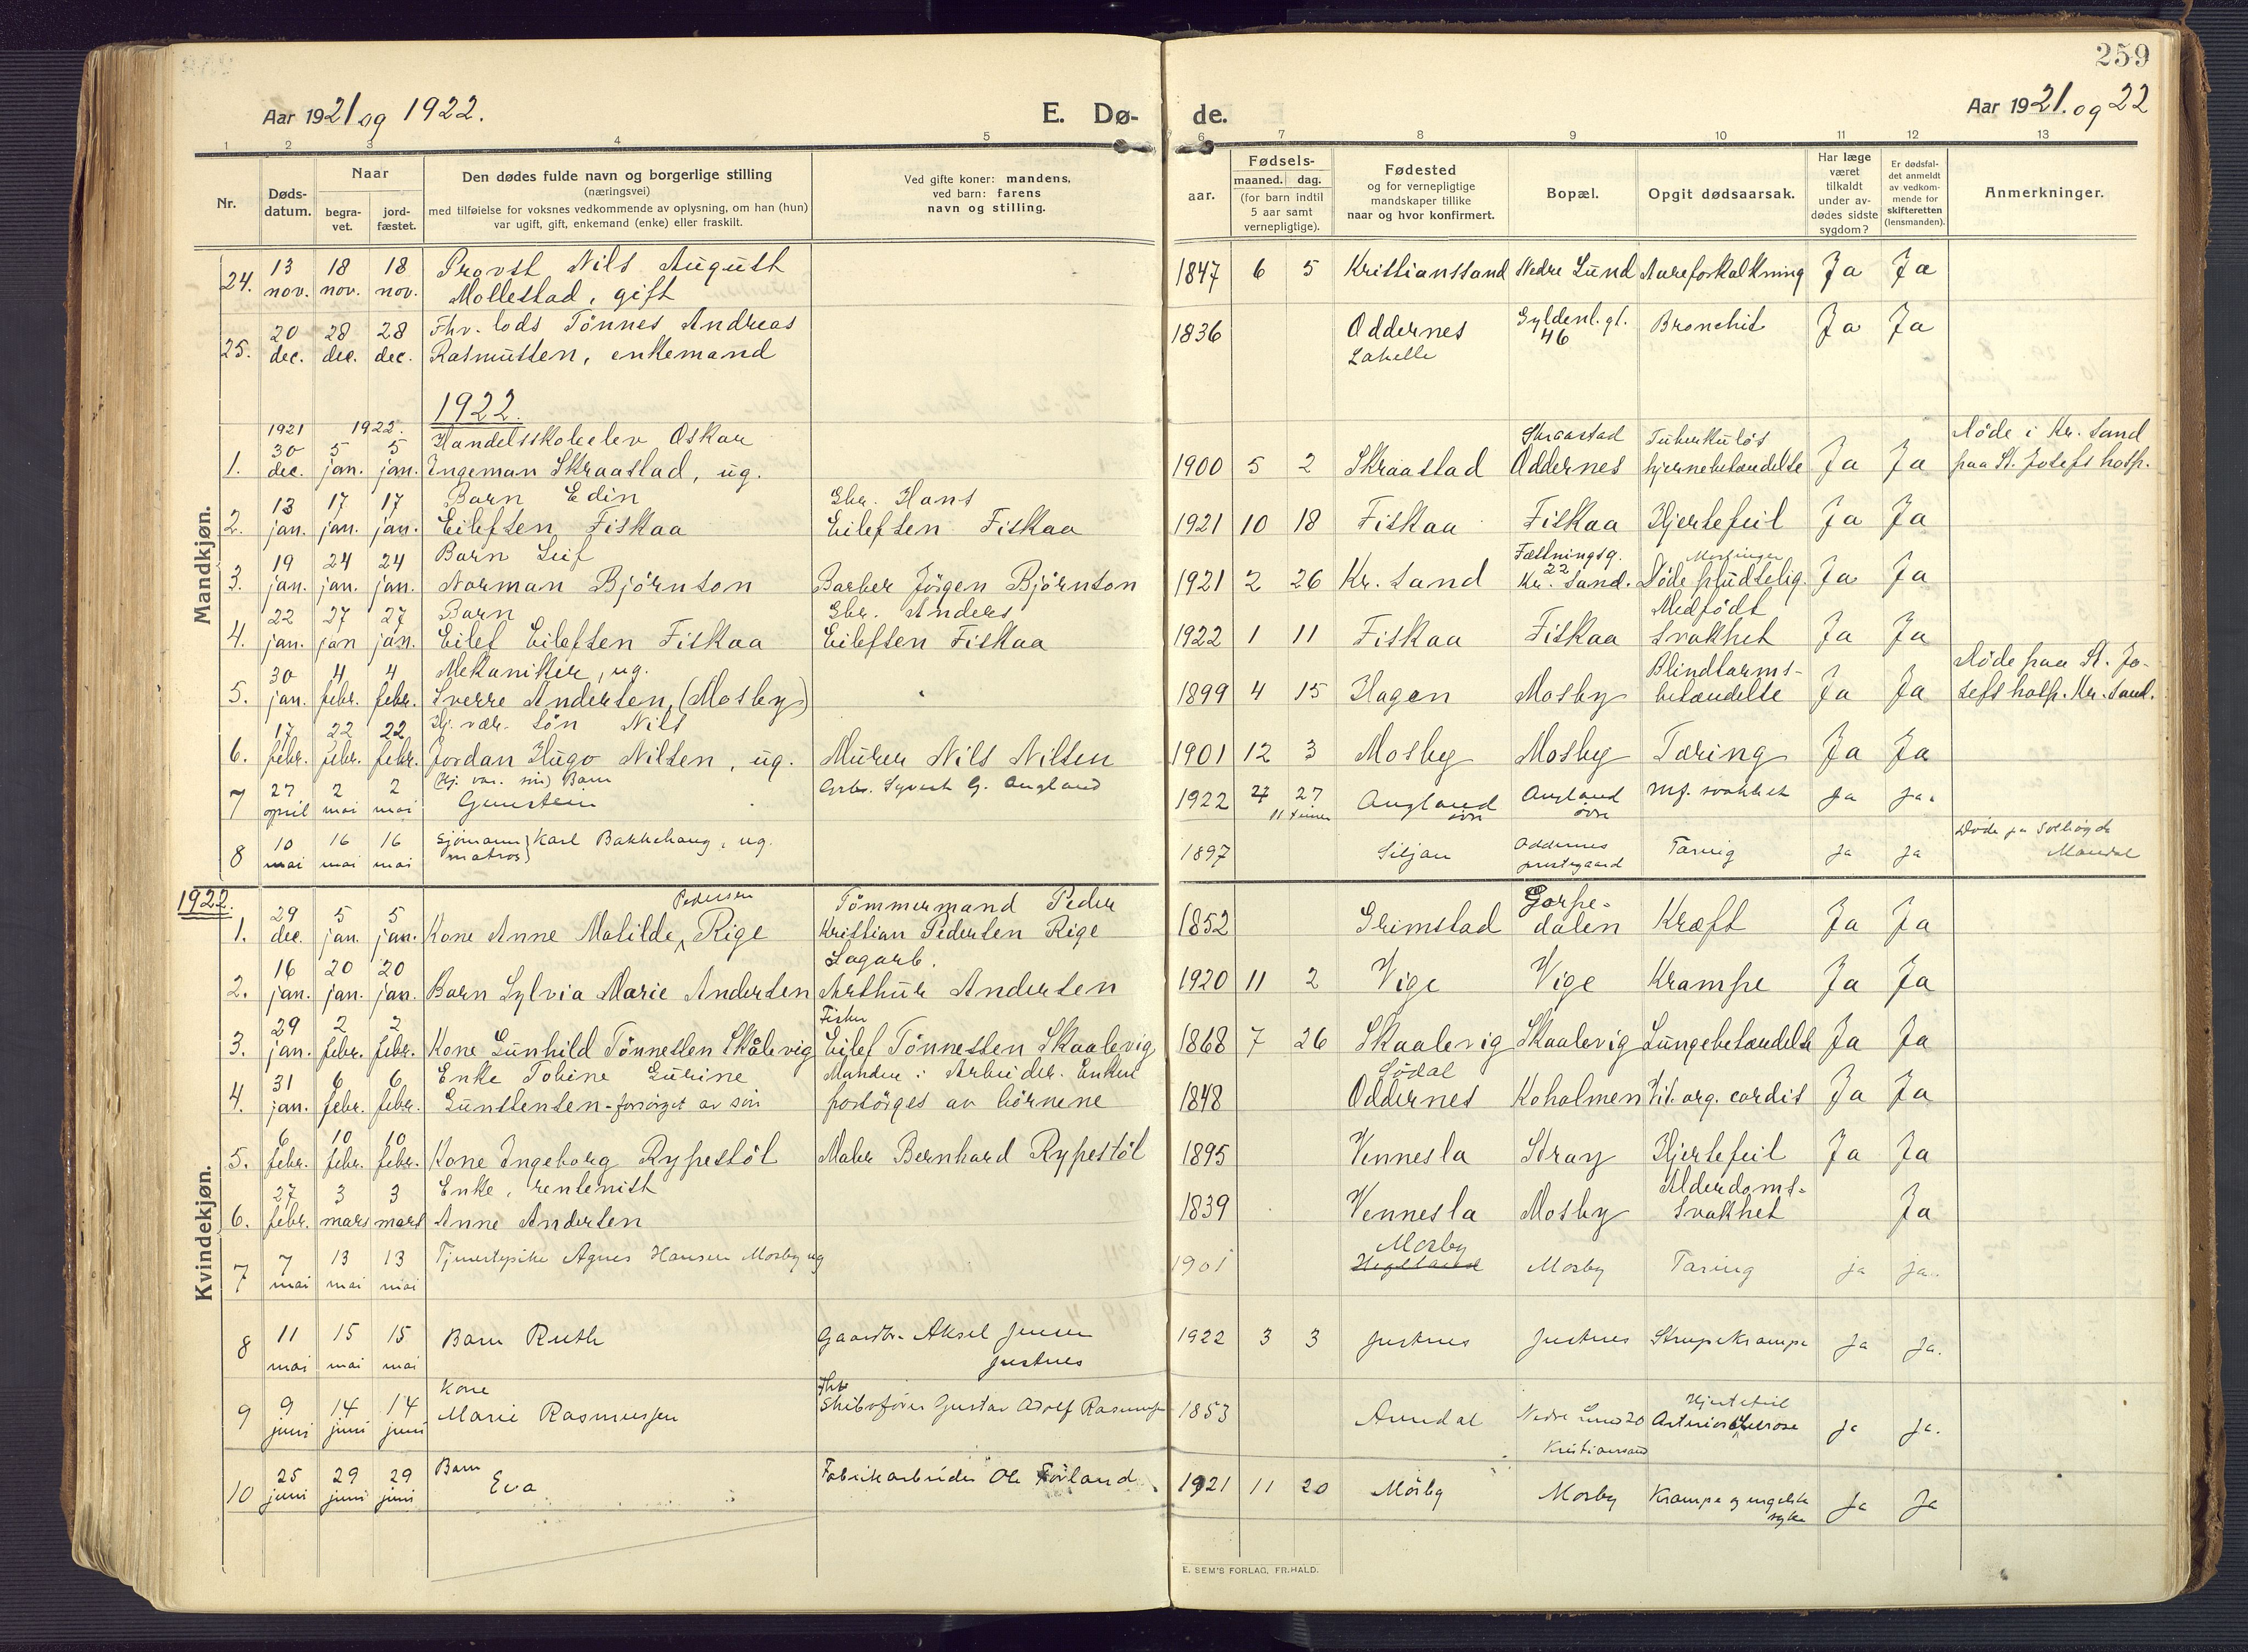 259
Aar 1921 og 1922.
E. Dø-
de.
Aar 1921. og 22
1 2 3 4 5 6 7 8 9 10 11 12 13
Nr.
Døds-
datum.
Naar
begra-
vet.
jord-
fæstet.
Den dødes fulde navn og borgerlige stilling
(næringsvei)
med tilføielse for voksnes vedkommende av oplysning, om han (hun)
var ugift, gift, enkemand (enke) eller fraskilt.
Ved gifte koner: mandens,
ved barn: farens
navn og stilling.
Fødsels-
aar.
maaned. dag.
(for barn indtil
5 aar samt
vernepligtige).
Fødested
og for vernepligtige
mandskaper tillike
naar og hvor konfirmert.
Bopæl.
Opgit dødsaarsak.
Har læge
været
tilkaldt
under av-
dødes sidste
sygdom?
Er dødsfal-
det anmeldt
av vedkom-
mende for
skifteretten
(lensmanden).
Anmerkninger.
Mandkjøn.
13 18 18 Provst Nils August
24. nov. nov. nov. Mollestad, gift 1847 6 5 Kristianssand Nedre Lund Aareforkalkning Ja Ja
20 28 28 Fhv. lods Tönnes Andreas Gyldenl. gt.
25. dec. dec. dec. Rasmussen, enkemand 1836 Oddernes 46 Bronchit Ja Ja
Lahelle
1922.
1921 1922. Handelsskoleelev Oskar Skraastad Tuberkuløs Døde i Kr. sand
30 5 5
1. dec. jan. jan. Ingeman Skraastad, ug. 1900 5 2 Skraastad Oddernes hjernebetændelse Ja Ja paa St. Josefs hosp.
13 17 17 Barn Edin Gbr. Hans
2. jan. jan. jan. Eilefsen Fiskaa Eilefsen Fiskaa 1921 10 18 Fiskaa Fiskaa Hjertefeil Ja Ja
19 24 24 Barn Leif Fæstningsg. 22
3. jan. jan. jan. Norman Björnson Barber Jörgen Björnson 1921 2 26 Kr. sand Kr. sand. Døde pludselig. Ja Ja
22 27 27 Barn Gbr. Anders Medfödt
4. jan. jan jan. Eilef Eilefsen Fiskaa Eilefsen Fiskaa 1922 1 11 Fiskaa Fiskaa svakhet Ja Ja
30 4 4 Mekaniker, ug. Blindtarms- Døde paa St. Jo-
5. jan. febr. febr. Sverre Andersen, (Mosby) 1899 4 15 Hagen Mosby betændelse Ja Ja sefs hosp. Kr. sand.
17 22 22 Hj. vær. sön Nils
6. febr. febr. febr. Jordan Hugo Nilsen, ug. Murer Nils Nilsen 1901 12 3 Mosby Mosby Tæring Ja Ja
27 2 2 Barn
7 april mai mai Gunstein Angland 1922 4 27 Augland Augland Mf. svakhet Ja Ja.
11 timer övre övre
10 16 16 Sjömann Karl Bakkehaug, ug. Oddernes Døde pa Solhögda
8 mai mai mai matros 1897 Siljan prestegaard Tæring Ja Ja Mandal
1922.
Kvindekjøn.
29 5 5 Pedersen Tömmermand Peder Gorpe-
1. dec. jan. jan. Kone Anne Matilde Rige Kristian Pedersen Rige 1852 Grimstad dalen Kræft Ja Ja
16 20 20 Sagarb.
2. jan. jan. jan. Barn Sylvia Marie Andersen Arthur Andersen 1920 11 2 Vige Vige Krampe Ja Ja
29 2 2 Fisker
3. jan. febr. febr. Kone Gunhild Tönnessen Skålevig Eilef Tönnessen Skaalevig 1868 7 26 Skaalevig Skaalevig Lungebetændelse Ja Ja
31 6 6 Enke Tobine Gurine Manden: Arbeider. Enken Södal
4. jan. febr. febr. Gunstensen - forsörget av sön forsörges av börnene 1848 Oddernes Koholmen Vit. org. cordis Ja Ja
6 10 10
5. febr. febr. febr. Kone Ingeborg Rypestöl Maler Bernhard Rypestöl 1895 Vennesla Stray Hjertefeil Ja Ja
27 3 3 Enke, rentenist Alderdoms-
6. febr. mars mars Anne Andersen 1839 Vennesla Mosby svakhet Ja
7 13 13 Tjenestepike Agnes Hansen Mosby ug Mosby
7 mai mai mai 1901 Mosby Tæring ja ja.
11 15 15 Gaardbr. Aksel Jensen
8 mai mai mai Barn Ruth Justnes 1922 3 3 Justnes Justnes Strupekrampe Ja Ja.
Kone Fhv Hjertefeil
9 9 14 14 Marie Rasmussen Skibsförer Gustav Adolf Rasmussen 1853 Arendal Nedre Lund 20 Arteriosclerose Ja Ja.
juni juni juni Kristiansand
25 29 29 Barn
10 juni juni juni Eva Fabrikarbeider Ole Förland 1921 11 20 Mosby Mosby Krampe og engelsk Ja Ja
syke
E. SEM'S FORLAG, FR.HALD.